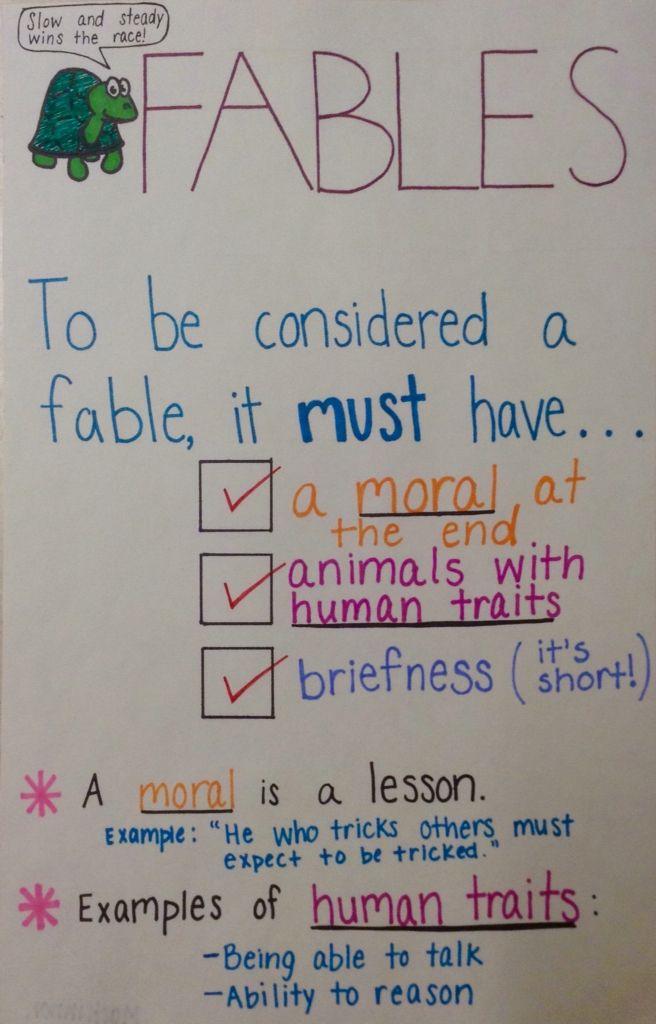 Slow and steady
wins the race!
FABLES
To be considered a
fable, it must have...
a moral at
the end
animals with
human traits
briefness (it's
short!)
A moral is a lesson.
Example: "He who tricks others must
expect to be tricked."
Examples of human traits:
-Being able to talk
-Ability to reason